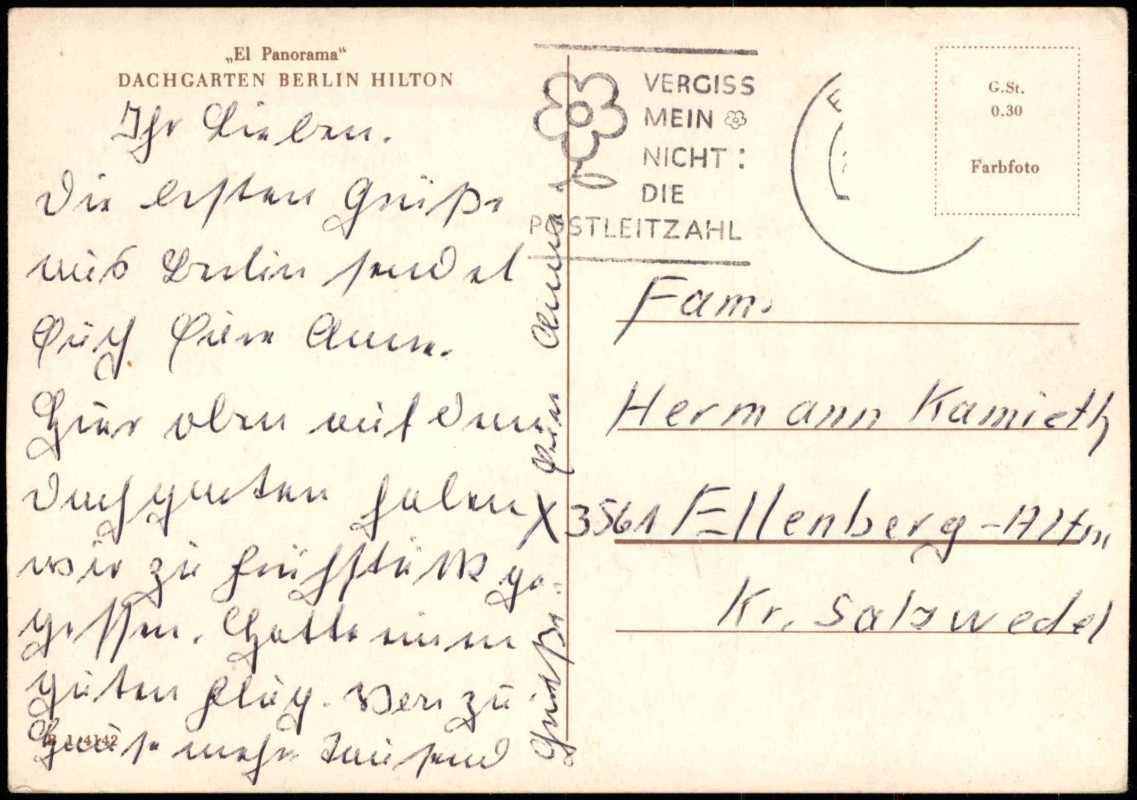 „El Panorama“
DACHGARTEN BERLIN HILTON
Ihr Lieben.
Die ersten Grüße
aus Berlin sendet
Euch Eure Anna.
Hier oben auf dem
Dachgarten haben
wir zu Frühstück ge-
gessen. Hatte einen
guten Flug. Von zu
Hause mehr. Tausend
Grüße. Eure Anna
VERGISS
MEIN
NICHT:
DIE
POSTLEITZAHL
G.St.
0.30
Farbfoto
Fam.
Hermann Kamieth
X3561 Ellenberg-Altm
Kr. Salzwedel